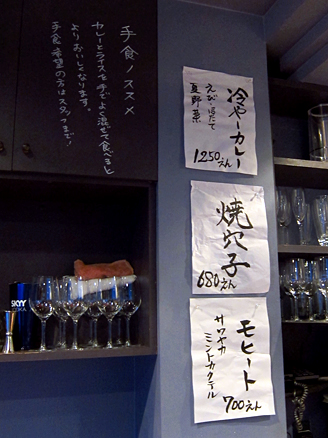 手食ノススメ
カレーとライスを手でよく混ぜて食べると
よりおいしくなります。
手食希望の方はスタッフまで!
冷やーカレー
えび・ほたて
夏野菜
1250えん
焼穴子
680えん
モヒート
サワヤカ
ミントカクテル
700えん
SKYY
VODKA